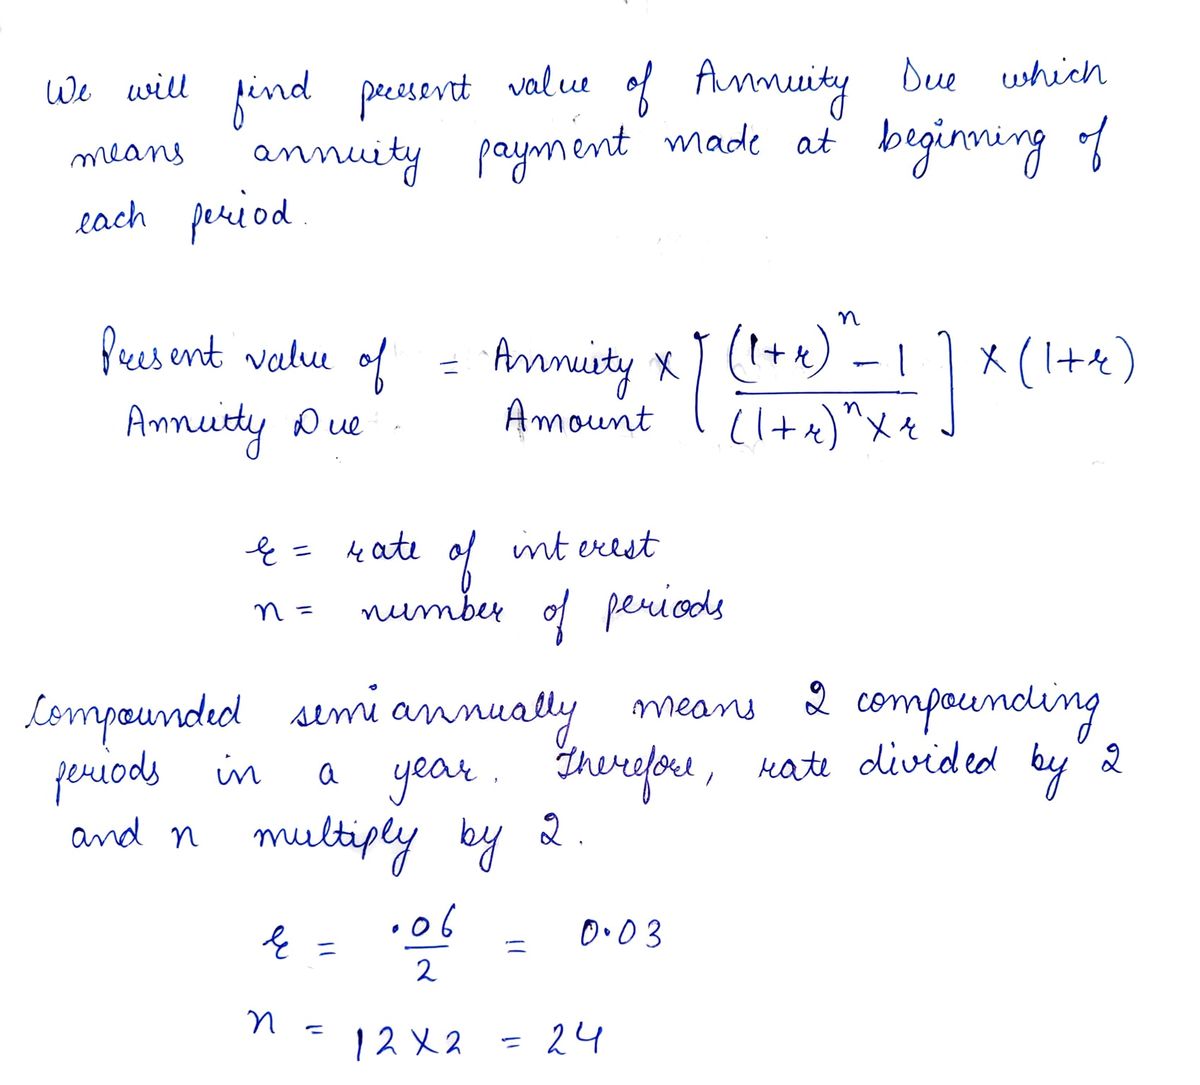 We will find present value of Annuity Due which
means annuity payment made at beginning of
each period.
Present value of Annuity Due = Annuity Amount × [ (1+r)^n - 1 / (1+r)^n × r ] × (1+r)
r = rate of interest
n = number of periods
Compounded semiannually means 2 compounding
periods in a year. Therefore, rate divided by 2
and n multiply by 2.
r = .06/2 = 0.03
n = 12 × 2 = 24